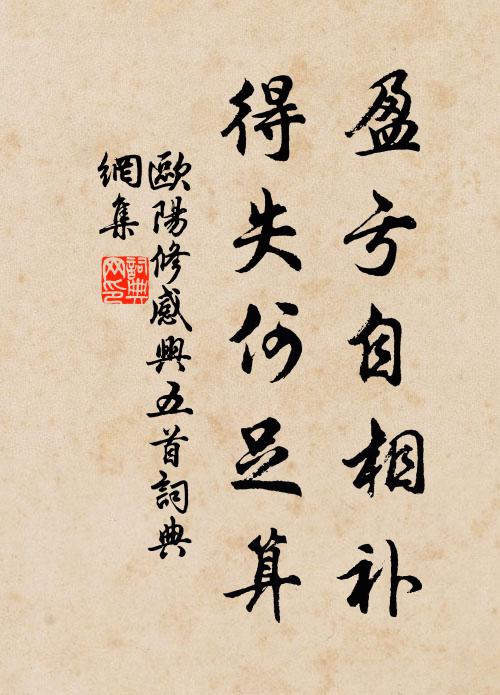 盈亏自相补
得失何足算
歐陽修感興五首詞典
網集
詞典
网印